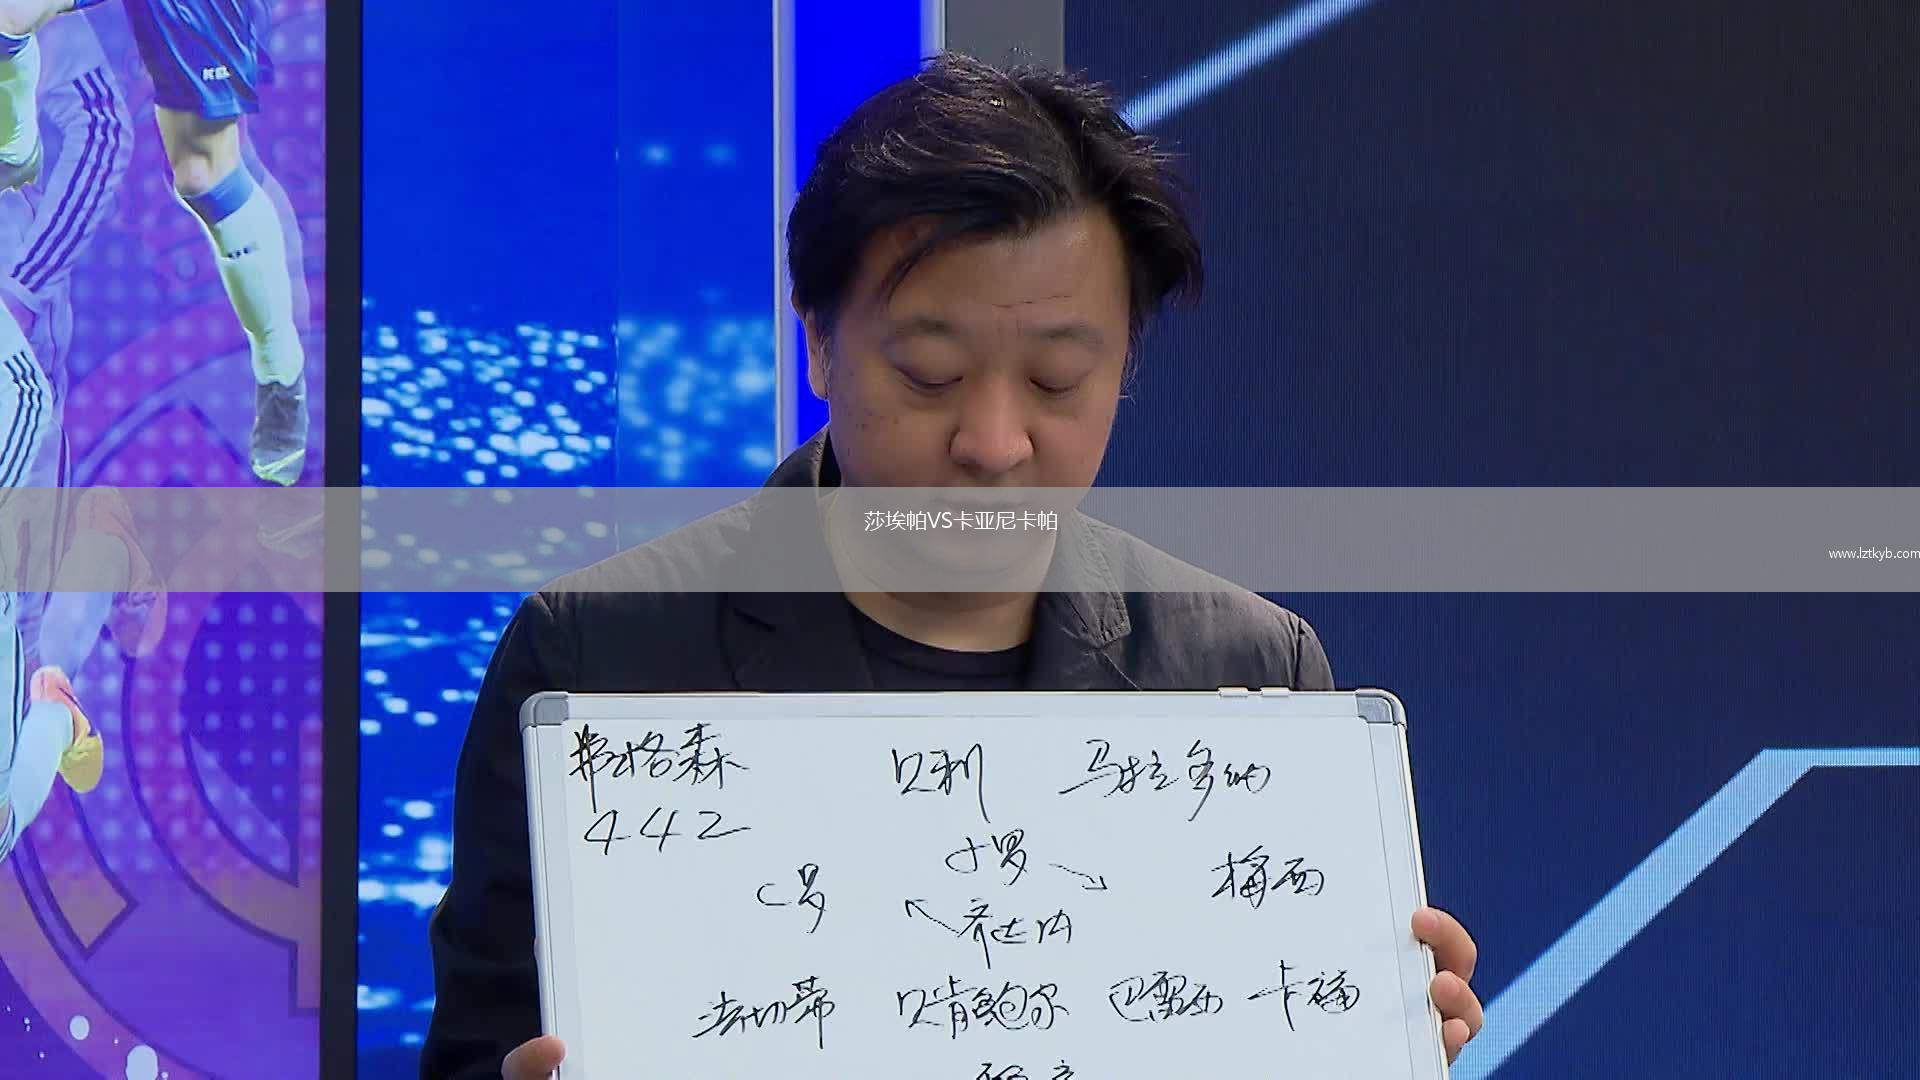 莎埃帕VS卡亚尼卡帕
www.lztkyb.com
弗格森 贝利 马拉多纳
442
小罗
C罗 梅西
齐达内
法切蒂 贝肯鲍尔 巴雷西 卡福